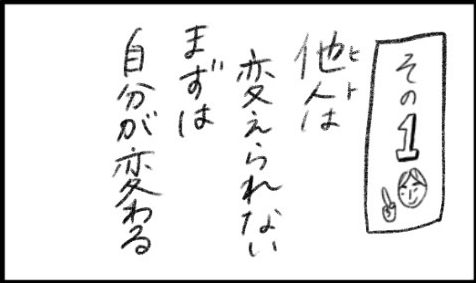 その1
他人は
ヒト
変えられない
まずは
自分が変わる